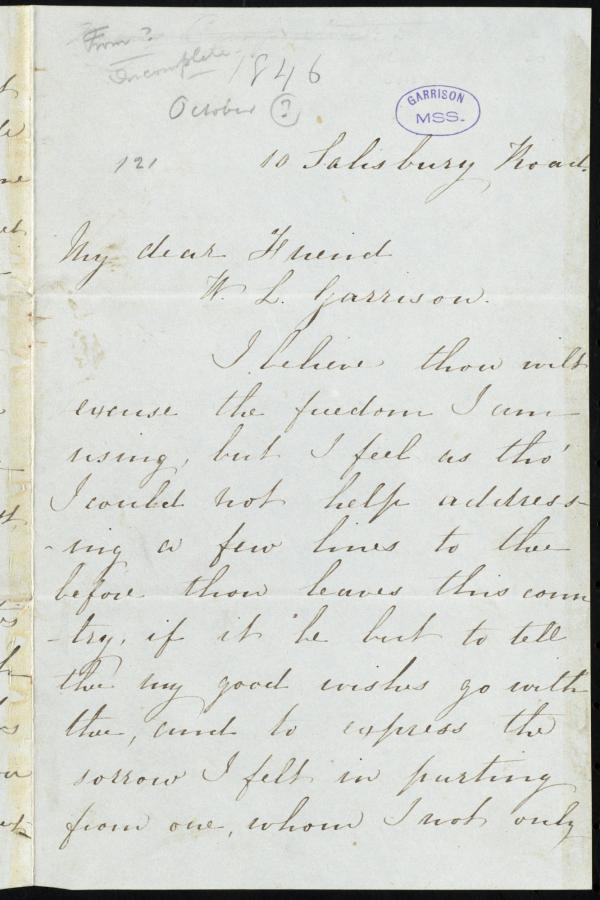 From?
Incomplete.
1846
October ?
GARRISON
MSS.
121
10 Salisbury Road.
My dear Friend
W. L. Garrison.
I believe thou wilt
excuse the freedom I am
using, but I feel as tho'
I could not help address-
-ing a few lines to thee
before thou leaves this coun
-try, if it be but to tell
thee my good wishes go with
thee, and to express the
sorrow I felt in parting
from one, whom I not only